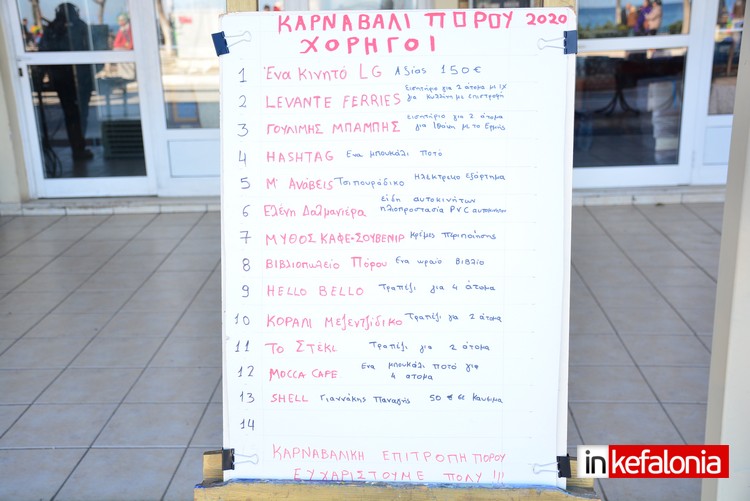 ΚΑΡΝΑΒΑΛΙ ΠΟΡΟΥ 2020
ΧΟΡΗΓΟΙ
1 Ένα Κινητό LG Αξίας 150€
2 LEVANTE FERRIES Εισητήρια για 2 άτομα με ΙΧ
για Κυλλήνη με επιστροφή
3 ΓΟΥΛΙΜΗΣ ΜΠΑΜΠΗΣ εισητήριο για 2 άτομα
για Ιθάκη με το Ερμής
4 HASHTAG Ένα μπουκάλι ποτό
5 Μ' Ανάβεις Τσιπουράδικο Ηλεκτρικο εξάρτημα
6 Ελένη Δαλμανιέρα είδη αυτοκινήτων
ηλιοπροστασία PVC
7 ΜΥΘΟΣ ΚΑΦΕ-ΣΟΥΒΕΝΙΡ Κρέμες περιποίησης
8 Βιβλιοπωλείο Πόρου Ένα ωραίο Βιβλίο
9 HELLO BELLO Τραπέζι για 4 άτομα
10 ΚΟΡΑΛΙ Μεζεντζίδικο Τραπέζι για 2 άτομα
11 Το Στέκι Τραπέζι για 2 άτομα
12 MOCCA CAFE Ένα μπουκάλι ποτό για
4 άτομα
13 SHELL Γιαννάκης Παναγής 50€ σε Καυσιμα
14
ΚΑΡΝΑΒΑΛΙΚΗ ΕΠΙΤΡΟΠΗ ΠΟΡΟΥ
ΕΥΧΑΡΙΣΤΟΥΜΕ ΠΟΛΥ !!!
inkefalonia